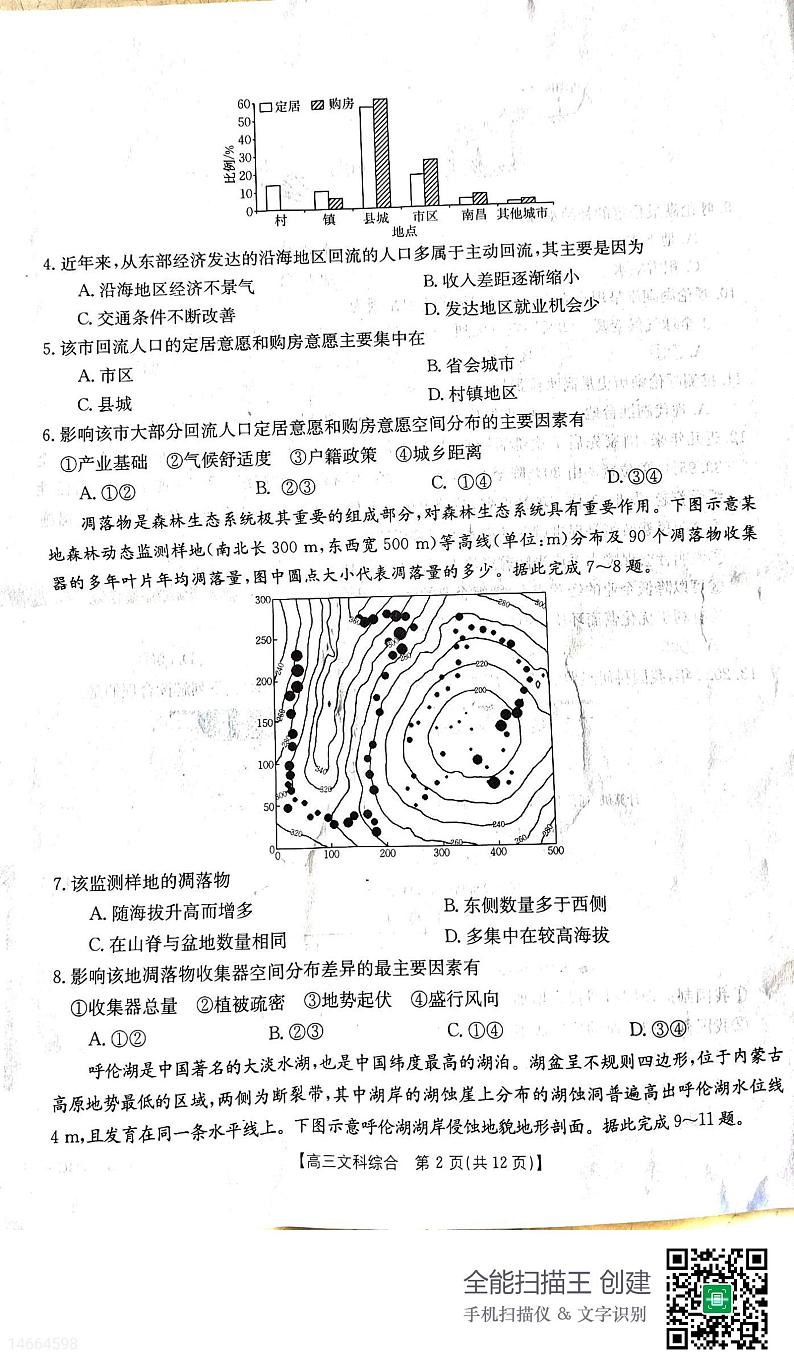 60
50
40
30
20
10
0
比例/%
定居 购房
村 镇 县城 市区 南昌 其他城市
地点
4. 近年来,从东部经济发达的沿海地区回流的人口多属于主动回流,其主要是因为
A. 沿海地区经济不景气 B. 收人差距逐渐缩小
C. 交通条件不断改善 D. 发达地区就业机会少
5. 该市回流人口的定居意愿和购房意愿主要集中在
A. 市区 B. 省会城市
C. 县城 D. 村镇地区
6. 影响该市大部分回流人口定居意愿和购房意愿空间分布的主要因素有
①产业基础 ②气候舒适度 ③户籍政策 ④城乡距离
A. ①② B. ②③ C. ①④ D. ③④
凋落物是森林生态系统极其重要的组成部分,对森林生态系统具有重要作用。下图示意某
地森林动态监测样地(南北长 300 m,东西宽 500 m)等高线(单位:m)分布及 90 个凋落物收集
器的多年叶片年均凋落量,图中圆点大小代表凋落量的多少。据此完成 7~8 题。
300
250
200
150
100
50
0
0 100 200 300 400 500
280 300
220
200
240
260
260
280
340
320
320
300
240
7. 该监测样地的凋落物
A. 随海拔升高而增多 B. 东侧数量多于西侧
C. 在山脊与盆地数量相同 D. 多集中在较高海拔
8. 影响该地凋落物收集器空间分布差异的最主要因素有
①收集器总量 ②植被疏密 ③地势起伏 ④盛行风向
A. ①② B. ②③ C. ①④ D. ③④
呼伦湖是中国著名的大淡水湖,也是中国纬度最高的湖泊。湖盆呈不规则四边形,位于内蒙古
高原地势最低的区域,两侧为断裂带,其中湖岸的湖蚀崖上分布的湖蚀洞普遍高出呼伦湖水位线
4 m,且发育在同一条水平线上。下图示意呼伦湖湖岸侵蚀地貌地形剖面。据此完成 9~11 题。
【高三文科综合 第 2 页(共 12 页)】
全能扫描王 创建
手机扫描仪 & 文字识别
14664598